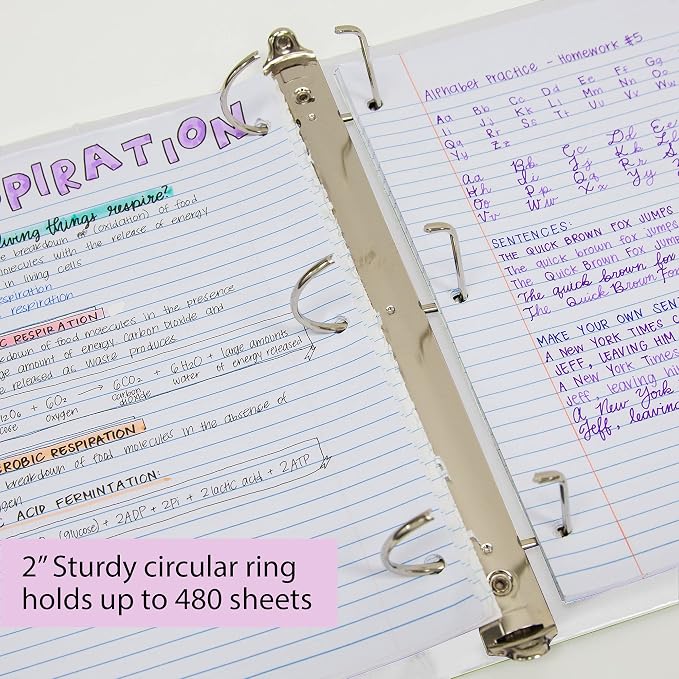 PIRATION
living things respire?
breakdown of (oxidation) of food
molecules with the release of energy
in living cells
respiration
respiration
C RESPIRATION
breakdown of food molecules in the presence
amount of energy. Carbon Dioxide and
released as waste products
+ 6O2 → 6CO2 + 6H2O + large amounts
oxygen carbon dioxide water of energy released
EROBIC RESPIRATION
breakdown of food molecules in the absence of
ACID FERMINTATION:
(glucose) + 2ADP + 2Pi → 2 lactic acid + 2ATP
Alphabet Practice - Homework #5
Aa Bb Cc Dd Ee Ff Gg
Ii Jj Kk Ll Mm Nn Oo
Qq Rr Ss Tt Uu Vv Ww
Yy Zz
Aa Bb Cc Dd Ee
Hh Ii Jj Kk Ll
Oo Pp Qq Rr Ss
Vv Ww Xx Yy
SENTENCES:
THE QUICK BROWN FOX JUMPS
The quick brown fox jumps
The Quick Brown Fox Jumps
The quick brown fox
The Quick Brown Fox
MAKE YOUR OWN SEN
A NEW YORK TIMES C
JEFF, LEAVING HIM
A New York Times
Jeff, leaving hi
A New York
Jeff, leavin
2" Sturdy circular ring
holds up to 480 sheets